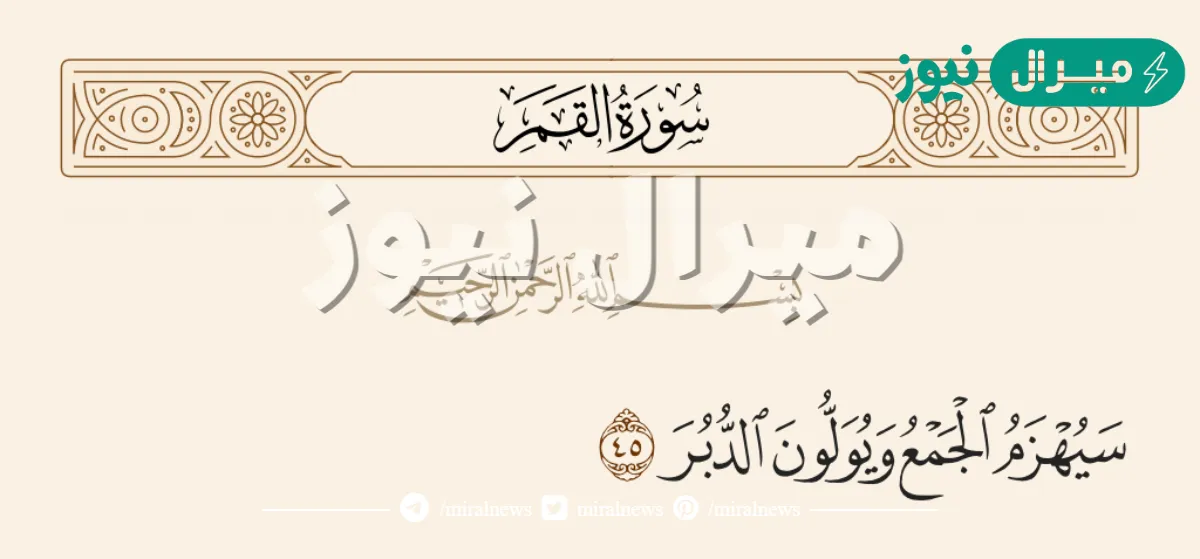 ميرال نيوز
سُورَةُ القَمَرِ
ميرال نيوز
بِسْمِ ٱللَّهِ ٱلرَّحْمَٰنِ ٱلرَّحِيمِ
سَيُهْزَمُ ٱلْجَمْعُ وَيُوَلُّونَ ٱلدُّبُرَ ٤٥
/miralnews miralnews /miralnews